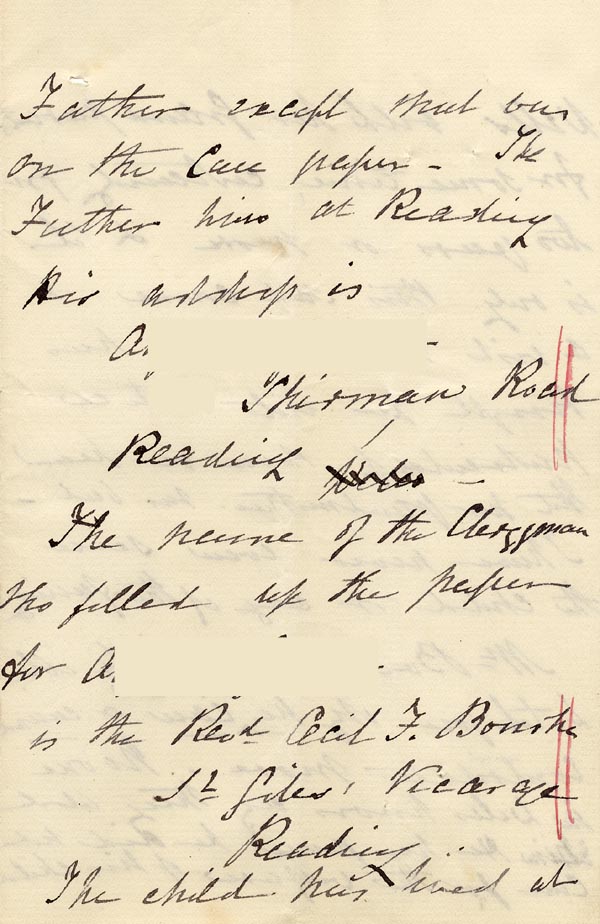 Father except that was
on the Case paper – The
Father lives at Reading
His address is
A.
" Shirman Road
Reading
The name of the Clergyman
who filled up the paper
for A.
is the Revd. Cecil F. Bourke
St Giles' Vicarage
Reading.
The child has lived at